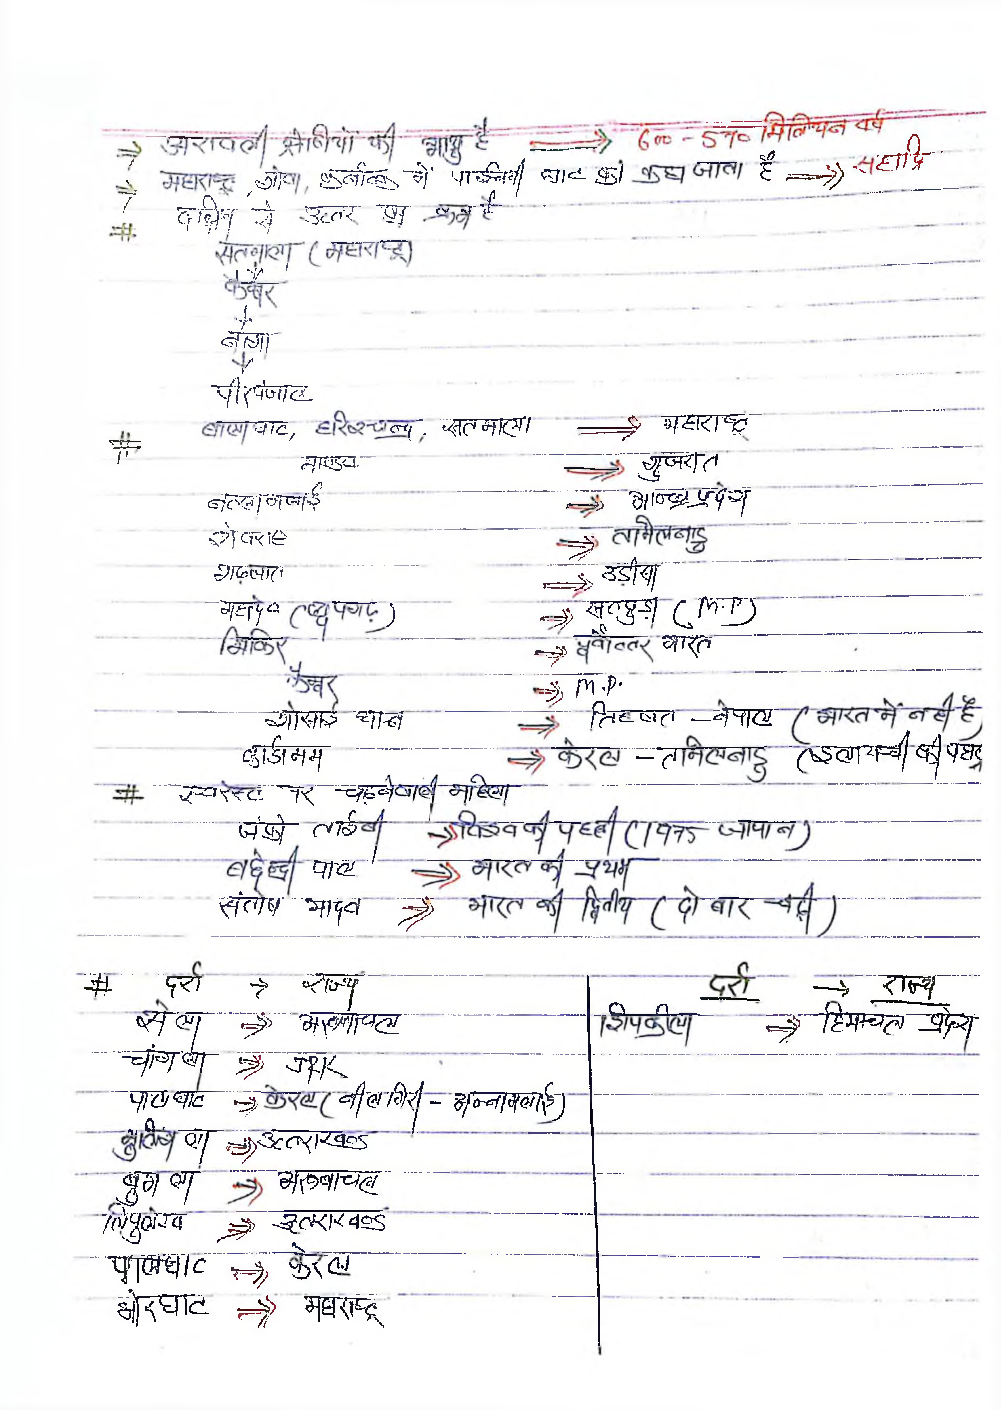 ⇒ अरावली श्रेणीयों की आयु है ⟹ 600-570 मिलियन वर्ष
⇒ महाराष्ट्र, गोवा, कर्नाटक में पश्चिमी घाट को कहा जाता है ⟹ सह्याद्रि
# दक्षिण से उत्तर का क्रम है
सतमाला (महाराष्ट्र)
↓
कैमूर
↓
↓
पीरपंजाल
# बालाघाट, हरिश्चन्द्र, सतमाला ⟹ महाराष्ट्र
माण्डव ⟹ गुजरात
⟹ आन्ध्र प्रदेश
शेवराय ⟹ तामिलनाडु
गढ़जात ⟹ उड़ीसा
महादेव (धूपगढ़) ⟹ सतपुड़ा (M.P)
मिकिर ⟹ पूर्वोत्तर भारत
कैमूर ⟹ M.P.
गोसाई थान ⟹ तिब्बत - नेपाल (भारत में नही है)
कार्डामम ⟹ केरल - तामिलनाडु (इलायची की पहाड़
# एवरेस्ट पर चढ़नेवाली महिला
जुंको ताईबी → विश्व की पहली (1975 जापान)
बछेन्द्री पाल ⟹ भारत की प्रथम
संतोष यादव ⟹ भारत की द्वितीय (दो बार चढ़ी)
# दर्रा → राज्य
से ला ⟹ अरूणाचल
चांग ला ⟹ J&K
पालघाट ⟹ केरल (नीलगिरी - अन्नामलाई)
⟹ उत्तराखण्ड
बुम ला ⟹ अरूणाचल
लिपुलेख ⟹ उत्तराखण्ड
पालघाट ⟹ केरल
भोरघाट ⟹ महाराष्ट्र
दर्रा → राज्य
शिपकीला ⟹ हिमाचल प्रदेश